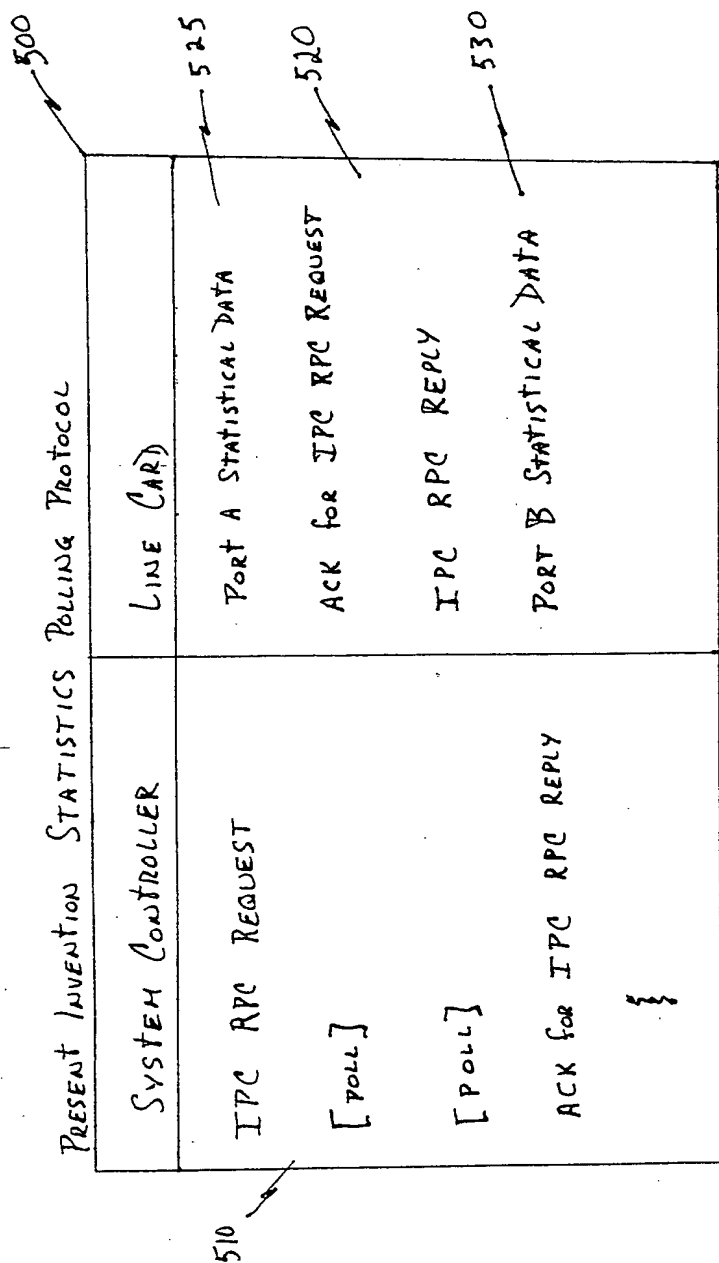 PRESENT INVENTION STATISTICS POLLING PROTOCOL
500
SYSTEM CONTROLLER
LINE CARD
510
IPC RPC REQUEST
PORT A STATISTICAL DATA
525
[POLL]
ACK for IPC RPC REQUEST
520
[POLL]
IPC RPC REPLY
ACK for IPC RPC REPLY
PORT B STATISTICAL DATA
530